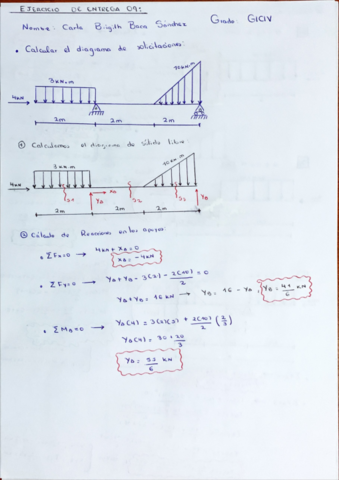 EJERCICIO DE ENTREGA 09:
Nombre: Carla Brigith Baca Sánchez Grado: GICIV
• Calcular el diagrama de solicitaciones:
3kN.m
10kN.m
4kN
A
B
2m 2m 2m
① Calculamos el diagrama de sólido libre
3 kN.m
10kN.m
4kN
XA
S1 YA S2 S3 YB
2m 2m 2m
② Cálculo de Reacciones en los apoyos
• ΣFx=0 → 4kN + XA = 0
XA = -4kN
• ΣFy=0 → YA + YB - 3(2) - 2(10)/2 = 0
YA + YB = 16 kN → YB = 16 - YA
• ΣMB=0 → YA(4) =
YA(4) = 30 + 20/3